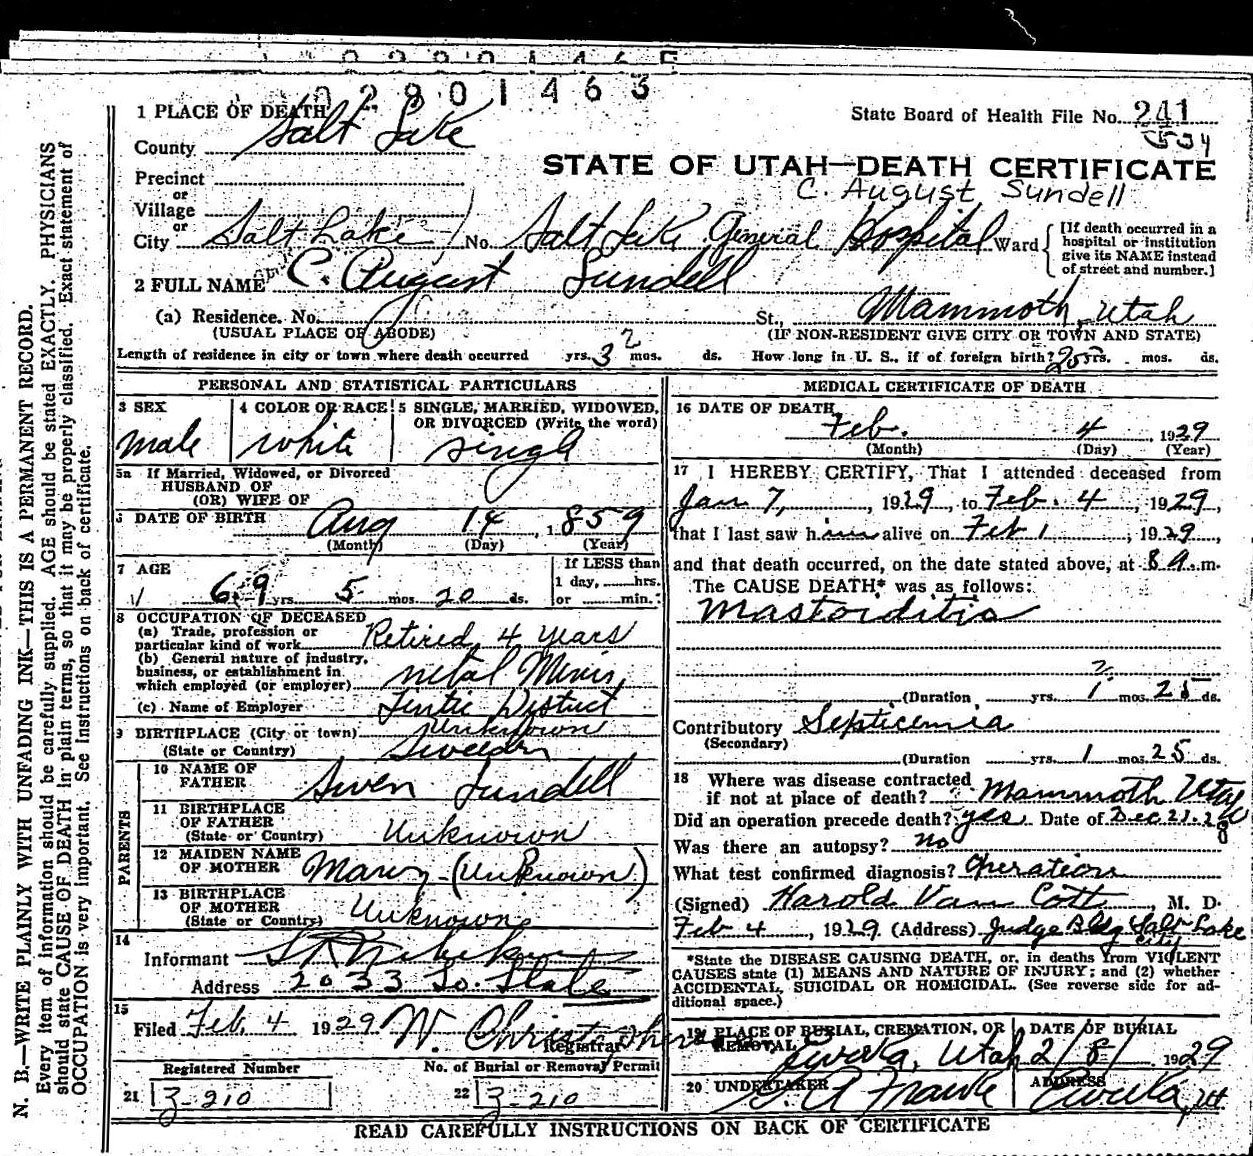 2901463
1 PLACE OF DEATH
State Board of Health File No. 241
534
County Salt Lake
STATE OF UTAH—DEATH CERTIFICATE
Precinct
C. August Sundell
or
Village
or
City Salt Lake No. Salt Lake General Hospital Ward
[If death occurred in a
hospital or institution
give its NAME instead
of street and number.]
2 FULL NAME C. August Sundell
(a) Residence. No. St., Mammoth, Utah
(USUAL PLACE OF ABODE) (IF NON-RESIDENT GIVE CITY OR TOWN AND STATE)
Length of residence in city or town where death occurred yrs. 3 mos. ds. How long in U. S., if of foreign birth? yrs. mos. ds.
PERSONAL AND STATISTICAL PARTICULARS
3 SEX
male
4 COLOR OR RACE
white
5 SINGLE, MARRIED, WIDOWED,
OR DIVORCED (Write the word)
single
5a If Married, Widowed, or Divorced
HUSBAND OF
(OR) WIFE OF
6 DATE OF BIRTH Aug 14, 1859
(Month) (Day) (Year)
7 AGE
69 yrs. 5 mos. 20 ds.
If LESS than
1 day, hrs.
or min.
8 OCCUPATION OF DECEASED
(a) Trade, profession or
particular kind of work Retired 4 years
(b) General nature of industry,
business, or establishment in
which employed (or employer) metal Mines
(c) Name of Employer Tintic District
9 BIRTHPLACE (City or town) Unknown
(State or Country) Sweden
PARENTS
10 NAME OF
FATHER Swen Sundell
11 BIRTHPLACE
OF FATHER
(State or Country) Unknown
12 MAIDEN NAME
OF MOTHER Mary - (Unknown)
13 BIRTHPLACE
OF MOTHER
(State or Country) Unknown
14
Informant
Address 2033 So. State
15
Filed Feb. 4 1929 W. Christopherson
Registrar
Registered Number
21 3-210
No. of Burial or Removal Permit
22 3-210
MEDICAL CERTIFICATE OF DEATH
16 DATE OF DEATH
Feb. 4, 1929
(Month) (Day) (Year)
17 I HEREBY CERTIFY, That I attended deceased from
Jan 7, 1929, to Feb. 4, 1929,
that I last saw him alive on Feb 1, 1929,
and that death occurred, on the date stated above, at 8 a.m.
The CAUSE DEATH* was as follows:
Mastoiditis
2
(Duration yrs. 1 mos. 25 ds.
Contributory Septicemia
(Secondary)
(Duration yrs. 1 mos. 25 ds.
18 Where was disease contracted
if not at place of death? Mammoth Utah
Did an operation precede death? yes. Date of Dec 21. 28
Was there an autopsy? no
What test confirmed diagnosis? Operation
(Signed) Harold Van Cott, M. D.
Feb 4, 1929 (Address) Judge Bldg Salt Lake
City
*State the DISEASE CAUSING DEATH, or, in deaths from VIOLENT
CAUSES state (1) MEANS AND NATURE OF INJURY; and (2) whether
ACCIDENTAL, SUICIDAL OR HOMICIDAL. (See reverse side for ad-
ditional space.)
19 PLACE OF BURIAL, CREMATION, OR
REMOVAL
Eureka, Utah
DATE OF BURIAL
2/8/ 1929
20 UNDERTAKER
ADDRESS
Eureka, Ut
READ CAREFULLY INSTRUCTIONS ON BACK OF CERTIFICATE
N. B.—WRITE PLAINLY WITH UNFADING INK—THIS IS A PERMANENT RECORD.
Every item of information should be carefully supplied. AGE should be stated EXACTLY. PHYSICIANS
should state CAUSE OF DEATH in plain terms, so that it may be properly classified. Exact statement of
OCCUPATION is very important. See instructions on back of certificate.